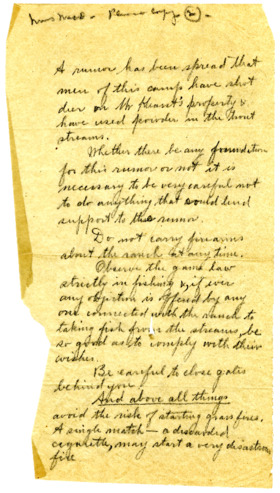 Please copy (2).
A rumor has been spread that
men of this camp have shot
deer on Mr Hearst's property &
have used powder in the trout
streams.
Whether there be any foundation
for this rumor or not it is
necessary to be very careful not
to do anything that would lend
support to the rumor.
Do not carry firearms
about the ranch at any time.
Observe the game law
strictly in fishing & if ever
any objection is offered by any
one connected with the ranch to
taking fish from the streams, be
so good as to comply with their
wishes.
Be careful to close gates
behind you
And above all things
avoid the risk of starting grass fires.
A single match — a discarded
cigarette, may start a very disastrous
fire